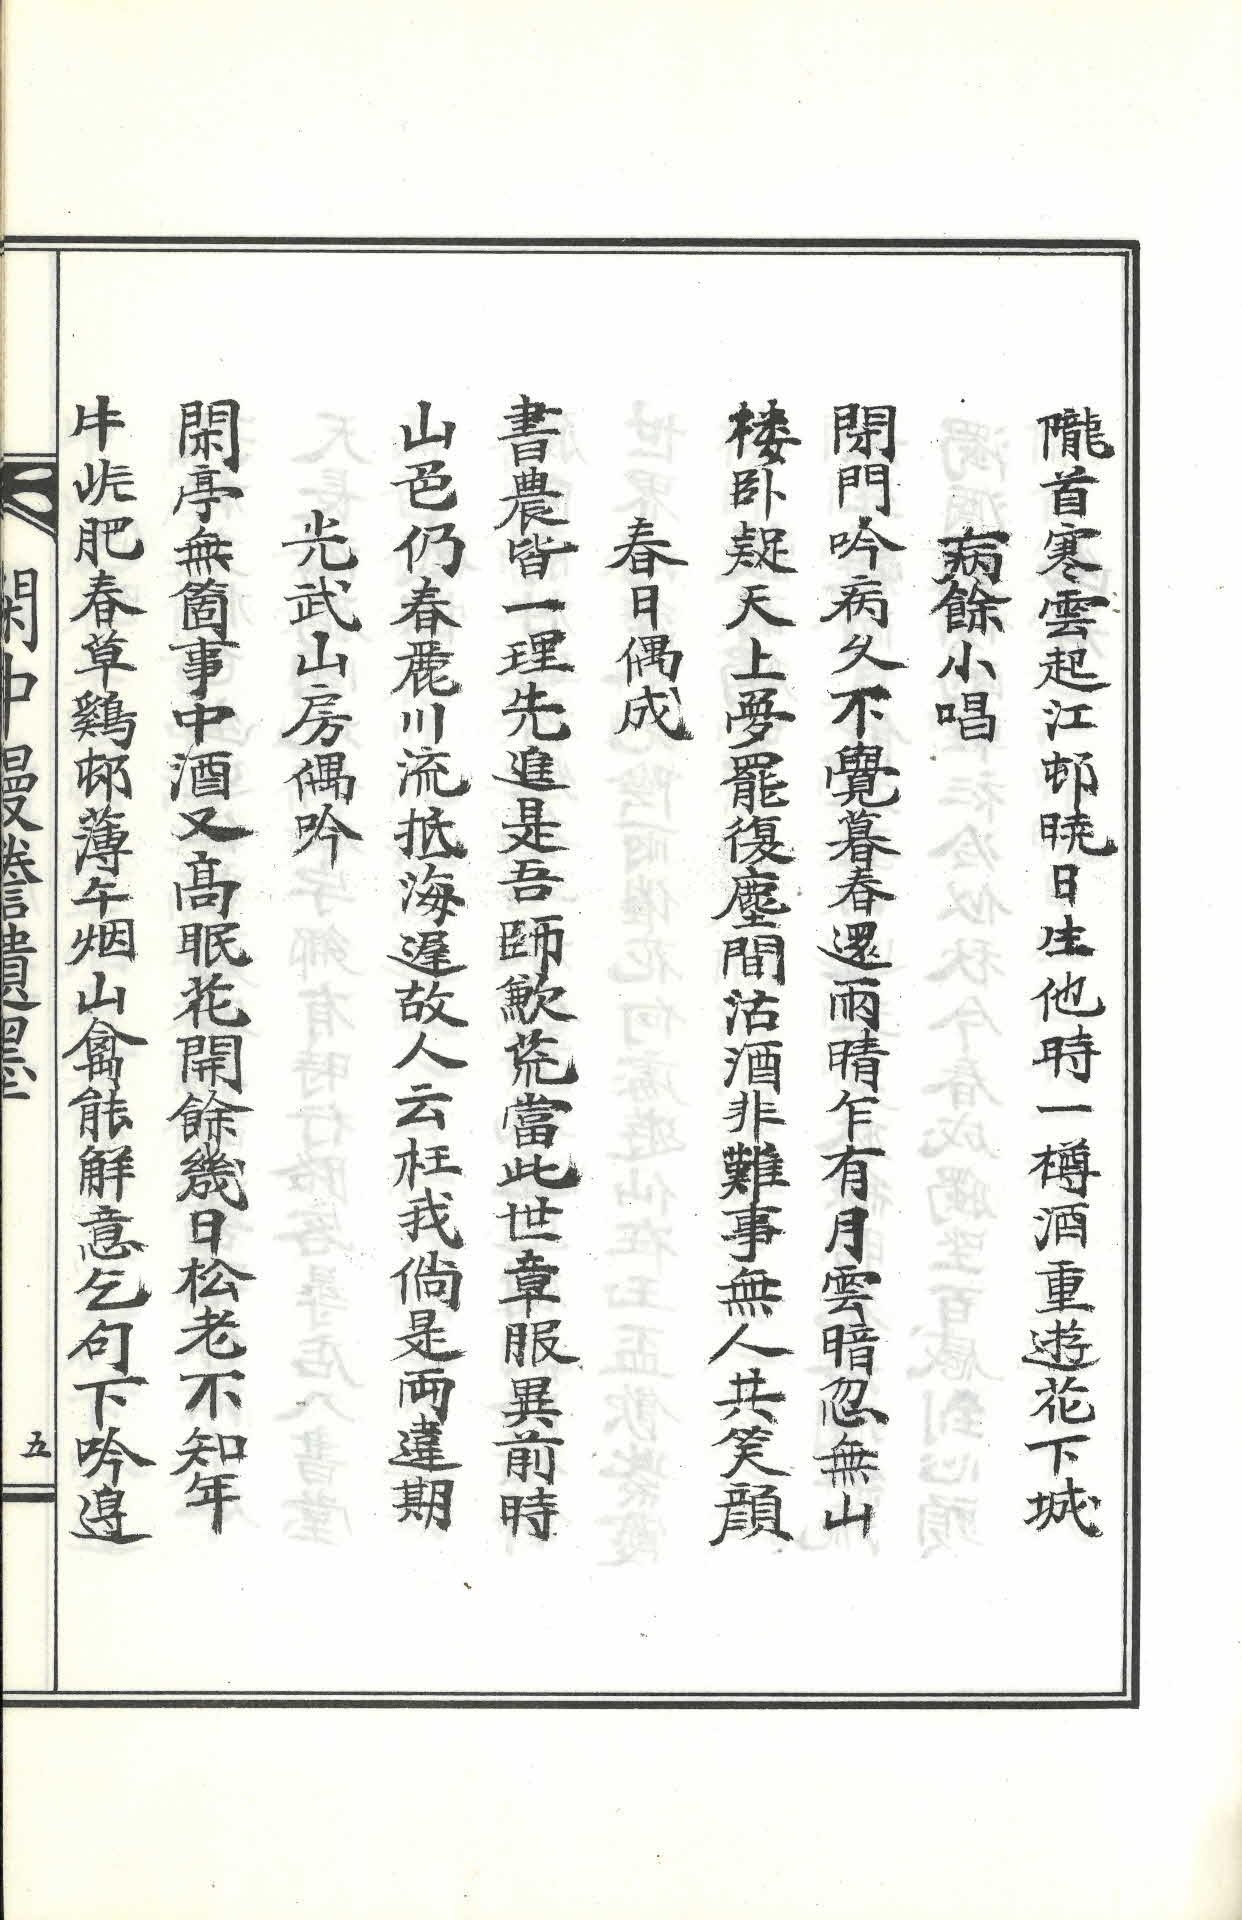 隴首寒雲起江邨暁日生他時一樽酒重遊花下城
病餘小唱
閉門吟病久不覺暮春還雨晴乍有月雲暗忽無山
楼卧疑天上夢罷復塵間沽酒非難事無人共笑顔
春日偶成
書農皆一理先進是吾師歉荒當此世章服異前時
山色仍春麗川流抵海遲故人云枉我倘是両違期
光武山房偶吟
閑亭無箇事中酒又高眠花開餘幾日松老不知年
牛 肥春草鷄邨薄午烟山禽能解意乞句下吟邊
閑中漫 遺墨
五